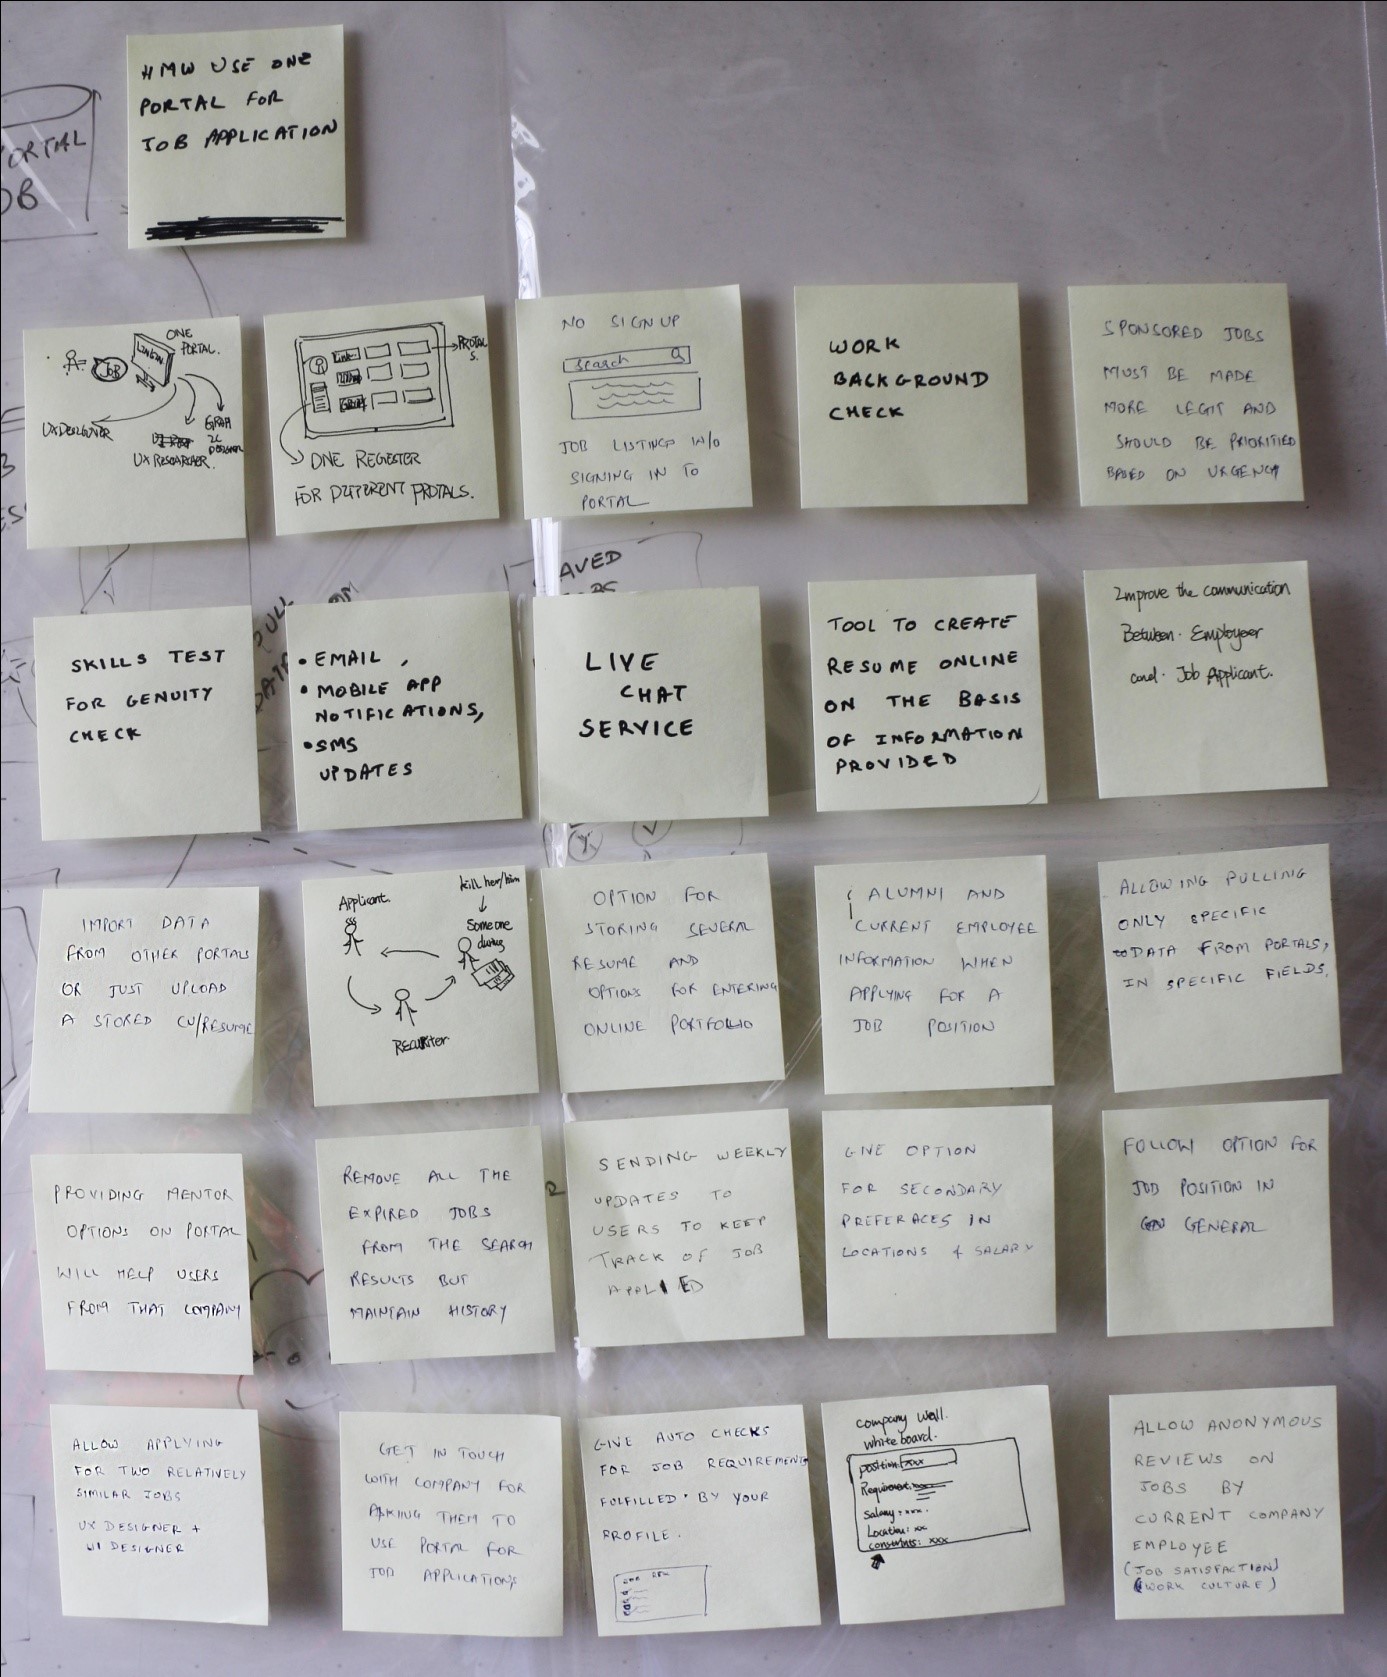 HMW USE ONE
PORTAL FOR
JOB APPLICATION
ORTAL
OB
ONE
PORTAL.
JOB
UXDESIGNER
UX RESEARCHER.
DESIGNER
PROTAL
S.
ONE REGISTER
FOR DIFFERENT PROTALS.
NO SIGN UP
Search
JOB LISTINGS W/O
SIGNING IN TO
PORTAL
WORK
BACKGROUND
CHECK
SPONSORED JOBS
MUST BE MADE
MORE LEGIT AND
SHOULD BE PRIORITIED
BASED ON URGENCY
SKILLS TEST
FOR GENUITY
CHECK
PULL
DATA
OM
• EMAIL,
• MOBILE APP
NOTIFICATIONS,
• SMS
UPDATES
AVED
LIVE
CHAT
SERVICE
TOOL TO CREATE
RESUME ONLINE
ON THE BASIS
OF INFORMATION
PROVIDED
Improve the communication
Between. Employer
and. Job Applicant.
IMPORT DATA
FROM OTHER PORTALS
OR JUST UPLOAD
A STORED CV/RESUME
Applicant.
kill her/him
Someone
during
Recruiter
OPTION FOR
STORING SEVERAL
RESUME AND
OPTIONS FOR ENTERING
ONLINE PORTFOLIO
ALUMNI AND
CURRENT EMPLOYEE
INFORMATION WHEN
APPLYING FOR A
JOB POSITION
ALLOWING PULLING
ONLY SPECIFIC
DATA FROM PORTALS,
IN SPECIFIC FIELDS.
PROVIDING MENTOR
OPTIONS ON PORTAL
WILL HELP USERS
FROM THAT COMPANY
REMOVE ALL THE
EXPIRED JOBS
FROM THE SEARCH
RESULTS BUT
MAINTAIN HISTORY
SENDING WEEKLY
UPDATES TO
USERS TO KEEP
TRACK OF JOB
APPLIED
GIVE OPTION
FOR SECONDARY
PREFERACES IN
LOCATIONS & SALARY
FOLLOW OPTION FOR
JOB POSITION IN
GENERAL
ALLOW APPLYING
FOR TWO RELATIVELY
SIMILAR JOBS
UX DESIGNER +
UI DESIGNER
GET IN TOUCH
WITH COMPANY FOR
ASKING THEM TO
USE PORTAL FOR
JOB APPLICATIONS
GIVE AUTO CHECKS
FOR JOB REQUIREMENTS
FULFILLED BY YOUR
PROFILE.
company wall.
whiteboard.
position: xxx
Requirement: xxx
Salary: xxx.
Location: xx
constraints: xxx
ALLOW ANONYMOUS
REVIEWS ON
JOBS BY
CURRENT COMPANY
EMPLOYEE
(JOB SATISFACTION)
(WORK CULTURE)